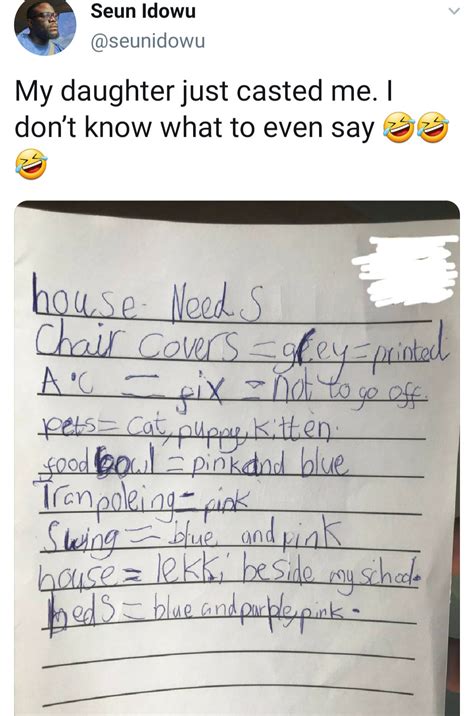 Seun Idowu
@seunidowu
My daughter just casted me. I
don't know what to even say 🤣🤣
🤣
house. Needs
Chair covers = grey = printed
A·C = fix = not to go off.
pets = Cat, puppy, Kitten.
food bowl = pink and blue
Tranpoleing = pink
Swing = blue and pink
house = lekki beside my school.
beds = blue and purple, pink.